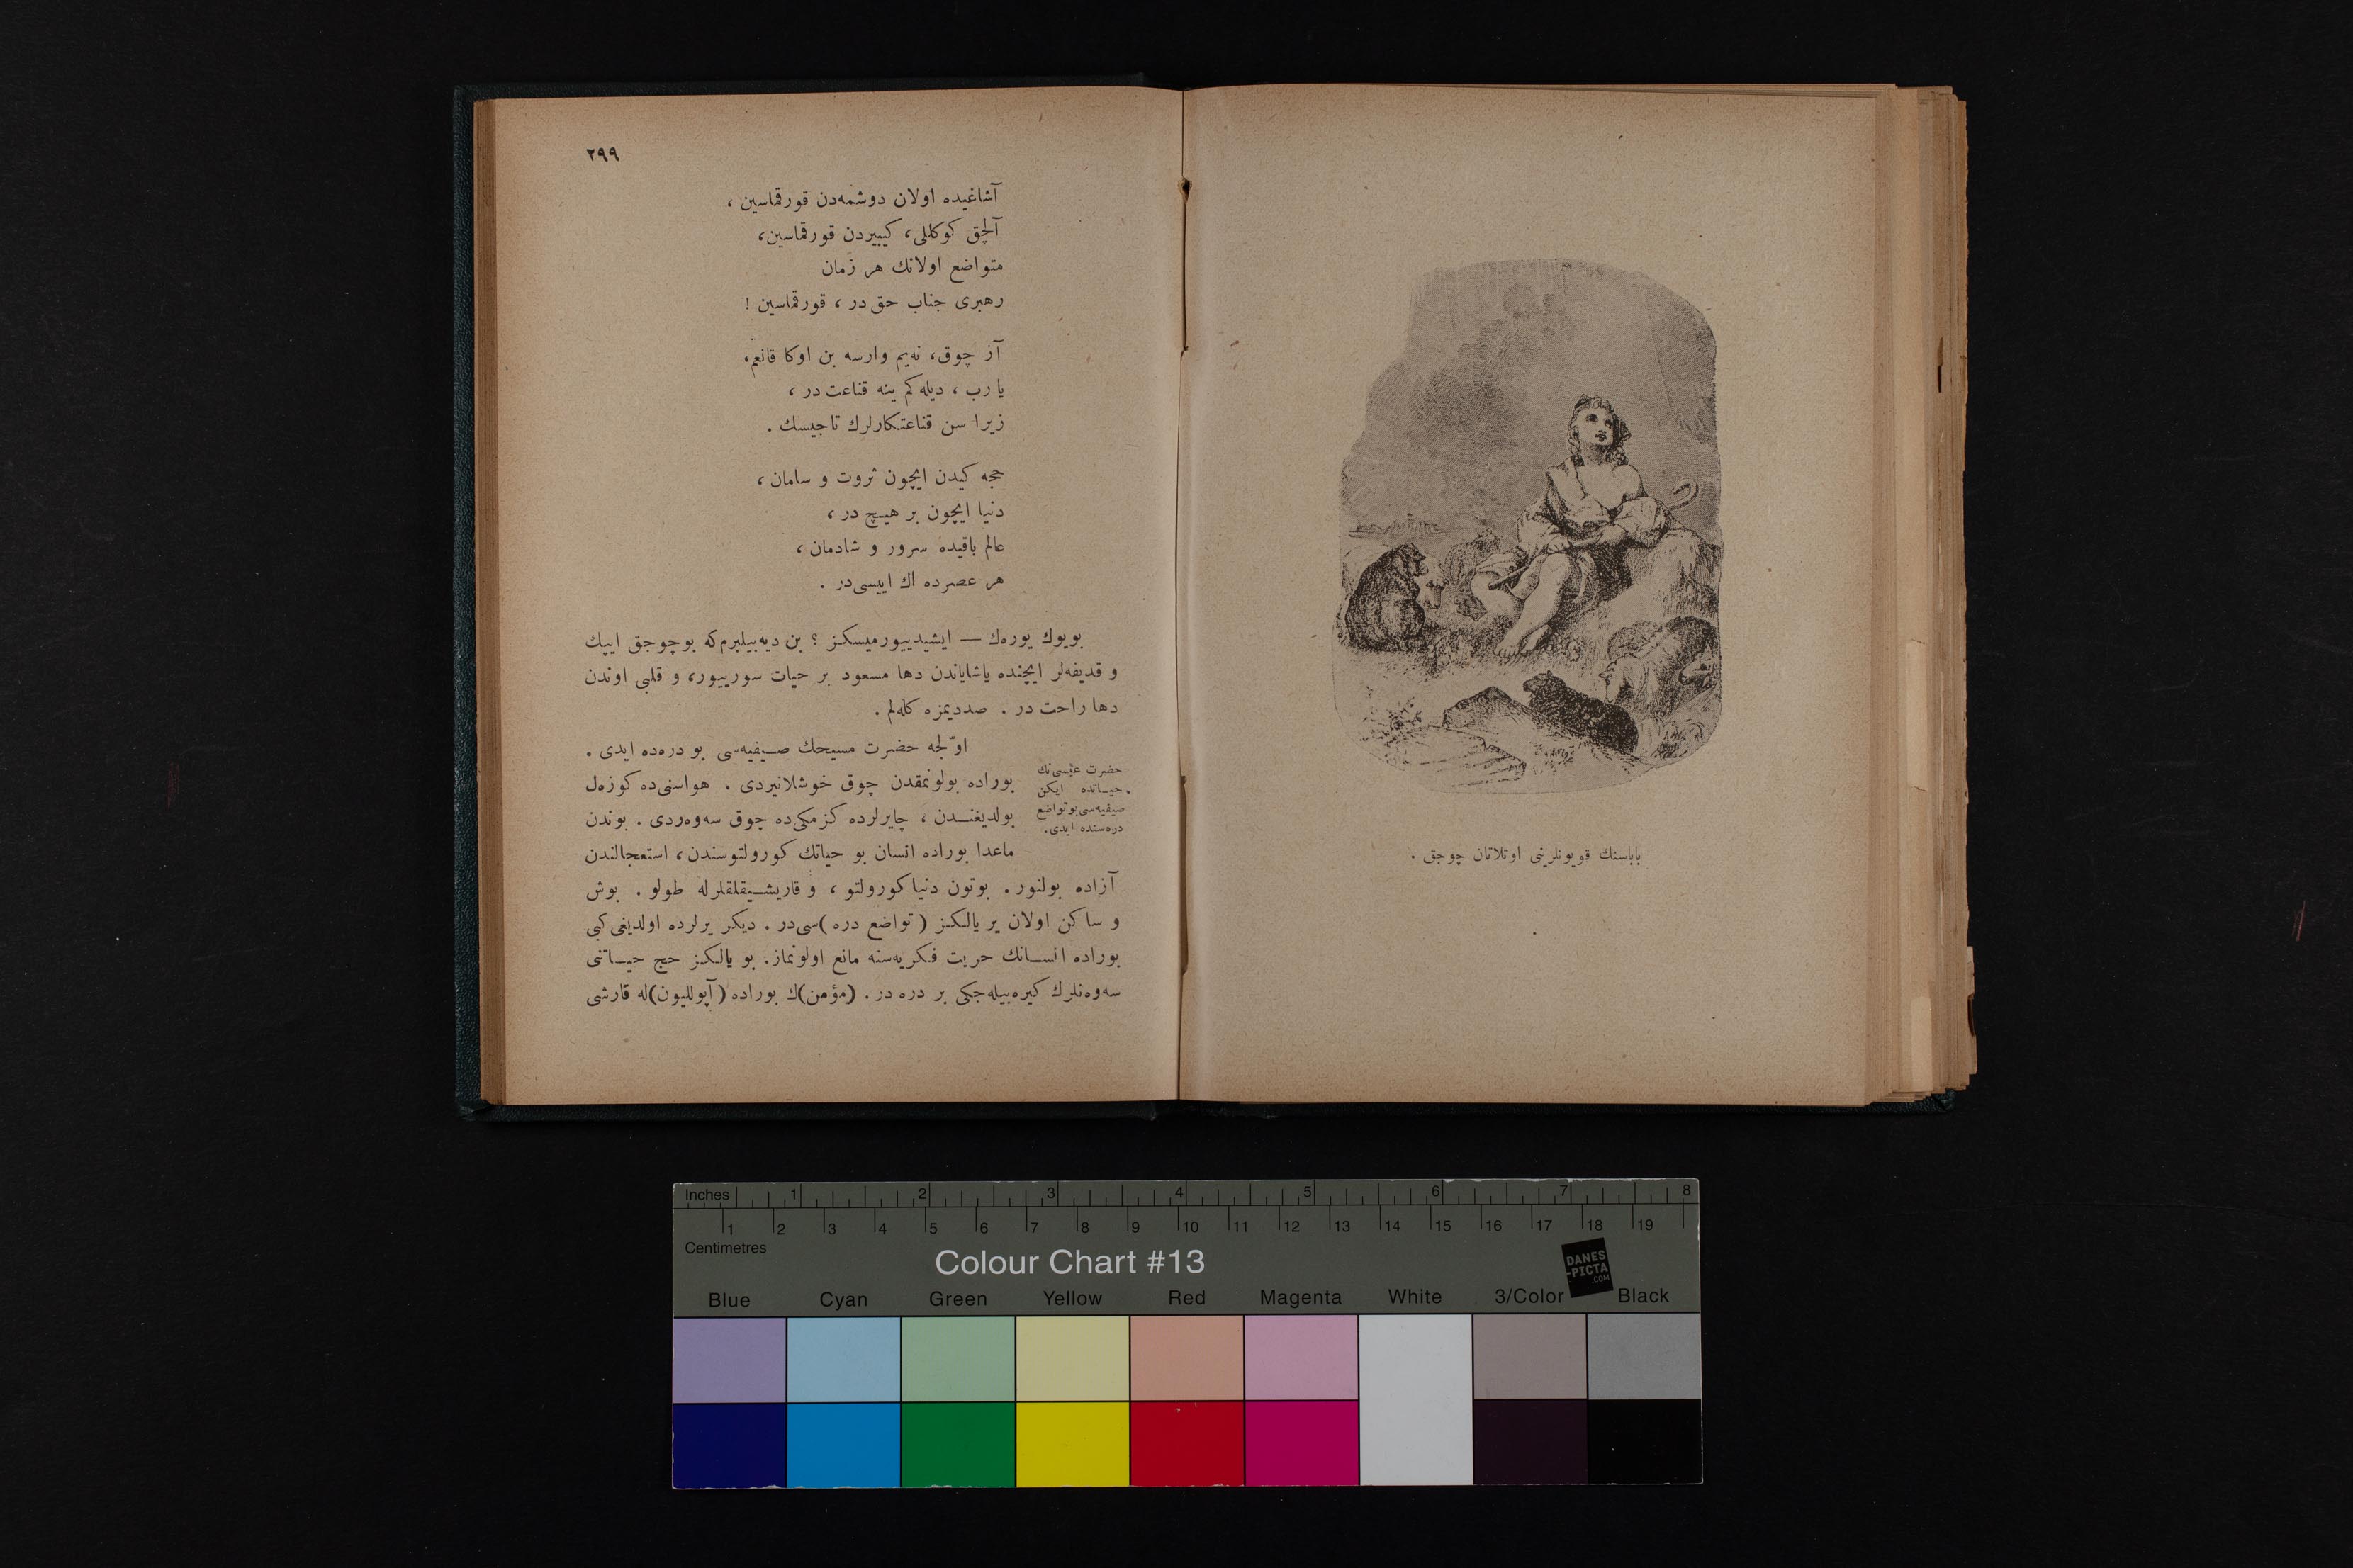 باباسنك قویونلرینی اوتلاتان چوجق .
٢٩٩
آشاغیده اولان دوشمه‌دن قورقماسین ،
آلچق كوكللی ، كیبیردن قورقماسین ،
متواضع اولانك هر زمان
رهبری جناب حق در ، قورقماسین !
آز چوق ، نه‌یم وارسه بن اوكا قانعم .
یا رب ، دیله‌كم ینه قناعت در ،
زیرا سن قناعتكارلرك تاجیسك .
حجه كیدن ایچون ثروت و سامان ،
دنیا ایچون بر هیچ در ،
عالم باقیده سرور و شادمان ،
هر عصرده اك اییسی‌در .
بویوك یورەك — ایشیدییورمیسكز ؟ بن دیه‌بیلیرم‌كه بو چوجق ایپك
و قدیفه‌لر ایچنده یاشایاندن دها مسعود بر حیات سورییور ، و قلبی اوندن
دها راحت در . صددیمزه كله‌لم .
اوّلجه حضرت مسیحك صیفیه‌سی بو دره‌ده ایدی .
حضرت عیسی‌نك
حیاتده ایكن
صیفیه‌سی بو تواضع
دره‌سنده ایدی .
بوراده بولونمقدن چوق خوشلانیردی . هواسنی‌ده كوزەل
بولدیغندن ، چایرلرده كزمكی‌ده چوق سەوەردی . بوندن
ماعدا بوراده انسان بو حیاتك كورولتوسندن ، استعجالندن
آزاده بولنور . بوتون دنیا كورولتو ، و قاریشیقلقلرله طولو . بوش
و ساكن اولان یر یالكز ( تواضع دره )سی‌در . دیكر یرلرده اولدیغی كبی
بوراده انسانك حریت فكریه‌سنه مانع اولونماز . بو یالكز حج حیاتنی
سەوەنلرك كیره‌بیله‌جكی بر دره در . (مؤمن)ك بوراده (آپوللیون)له قارشی
Inches 1 2 3 4 5 6 7 8
1 2 3 4 5 6 7 8 9 10 11 12 13 14 15 16 17 18 19
Centimetres
Colour Chart #13
DANES
-PICTA
.COM
Blue Cyan Green Yellow Red Magenta White 3/Color Black